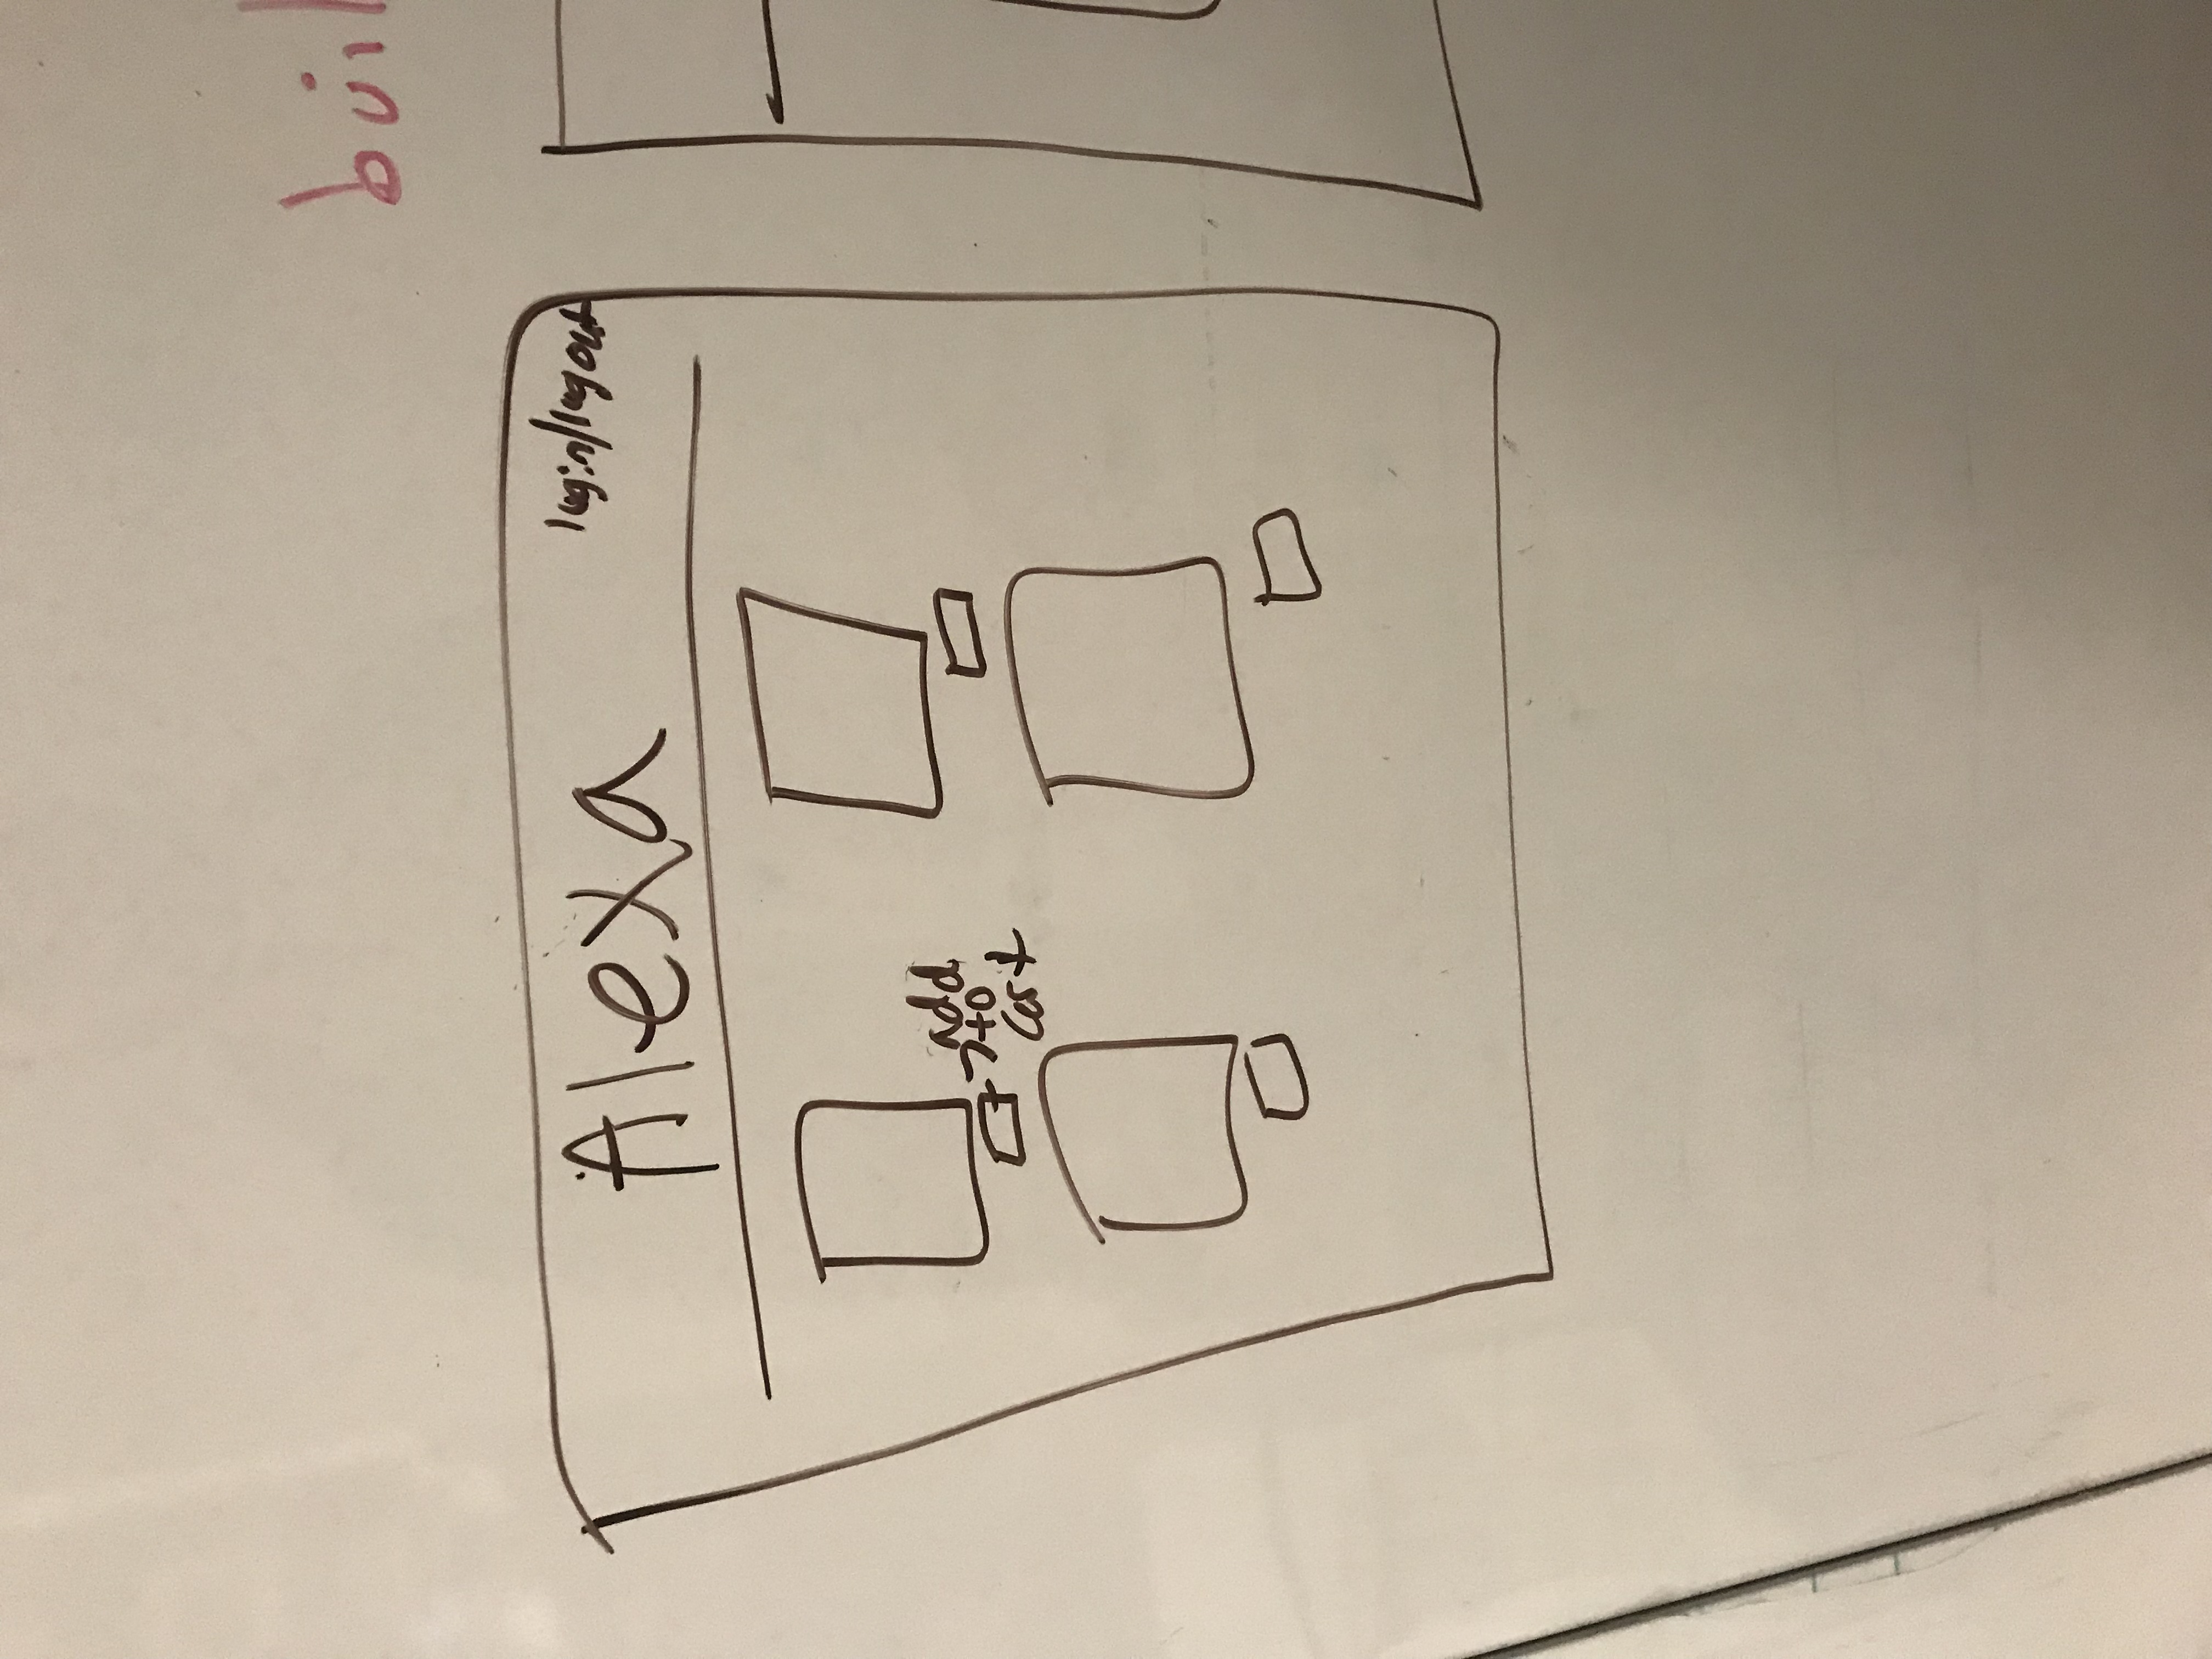 buil
Alexa
login/logout
add
to
cart